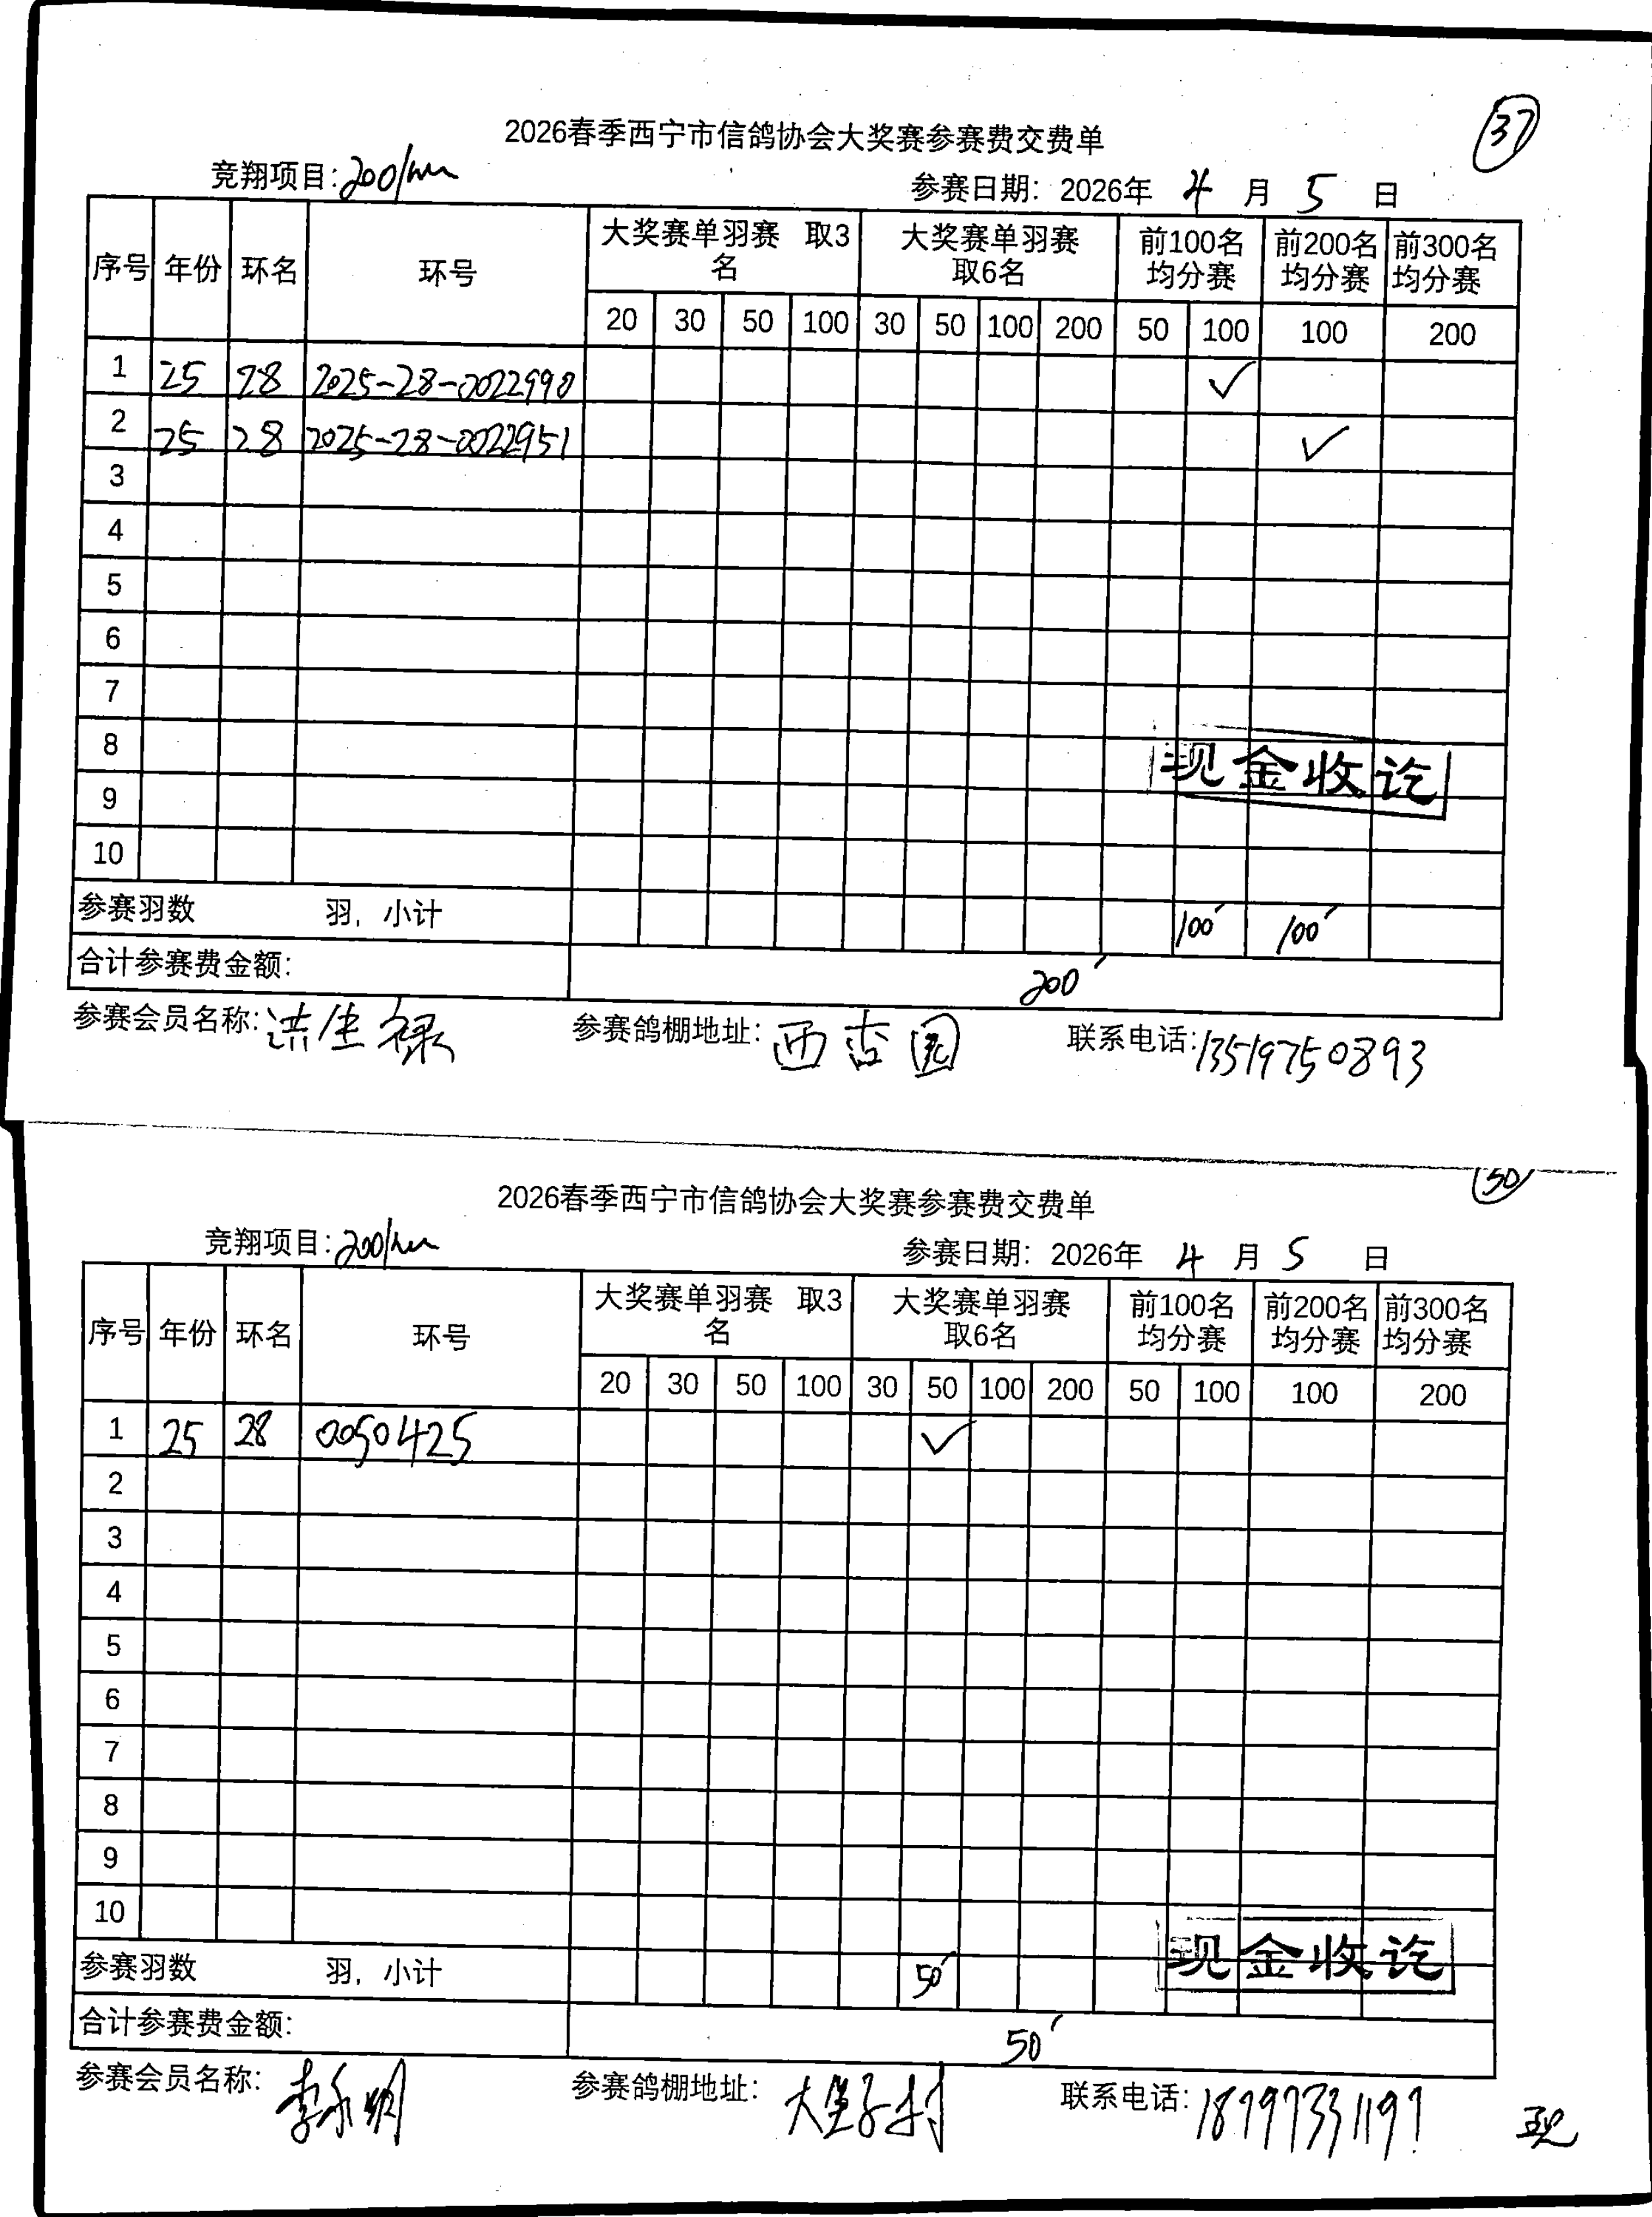 37
2026春季西宁市信鸽协会大奖赛参赛费交费单
竞翔项目:200km 参赛日期: 2026年 4 月 5 日
序号 年份 环名 环号 大奖赛单羽赛 取3名 大奖赛单羽赛 取6名 前100名均分赛 前200名均分赛 前300名均分赛
20 30 50 100 30 50 100 200 50 100 100 200
1 25 28 2025-28-0022990 ✓
2 25 28 2025-28-0022951 ✓
3
4
5
6
7
8
现金收讫
9
10
参赛羽数 羽, 小计 100 100
合计参赛费金额: 200
参赛会员名称:洪生禄 参赛鸽棚地址: 西杏园 联系电话:13519750893
50
2026春季西宁市信鸽协会大奖赛参赛费交费单
竞翔项目:200km 参赛日期: 2026年 4 月 5 日
序号 年份 环名 环号 大奖赛单羽赛 取3名 大奖赛单羽赛 取6名 前100名均分赛 前200名均分赛 前300名均分赛
20 30 50 100 30 50 100 200 50 100 100 200
1 25 28 0050425 ✓
2
3
4
5
6
7
8
9
10
现金收讫
参赛羽数 羽, 小计 50
合计参赛费金额: 50
参赛会员名称: 李永明 参赛鸽棚地址: 大堡子村 联系电话: 现